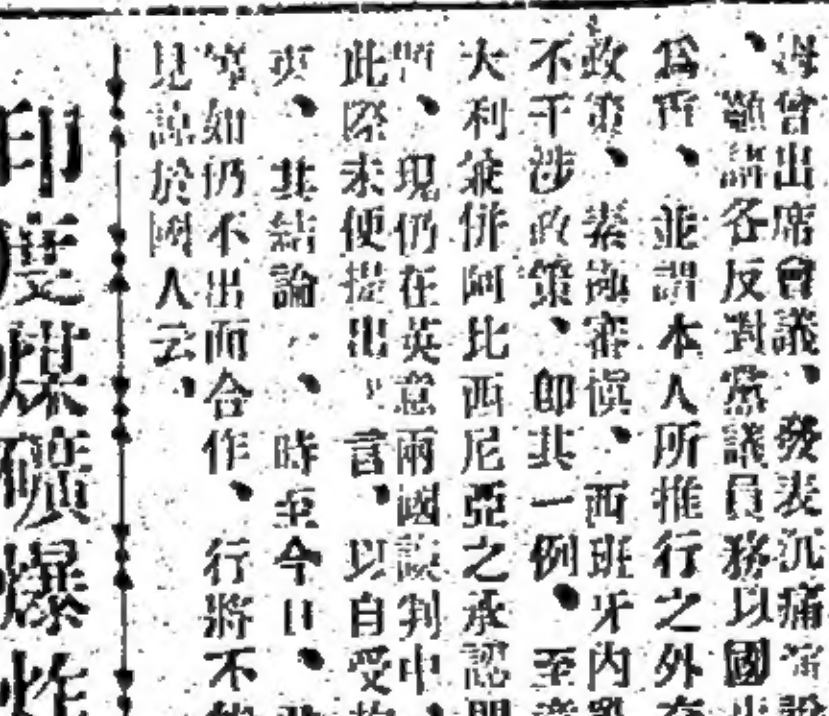 會出席會議、發表沉痛演說
、籲請各反對黨議員務以國
爲重、並謂本人所推行之外交
政策、素極審慎、西班牙內亂
不干涉政策、即其一例、至意
大利兼併阿比西尼亞之承認問
、現仍在英意兩國談判中、
此際未便提出 言、以自受
其結論 、時至今日、
等如仍不出而合作、行將不能
見諒於國人云、
印度煤礦爆炸